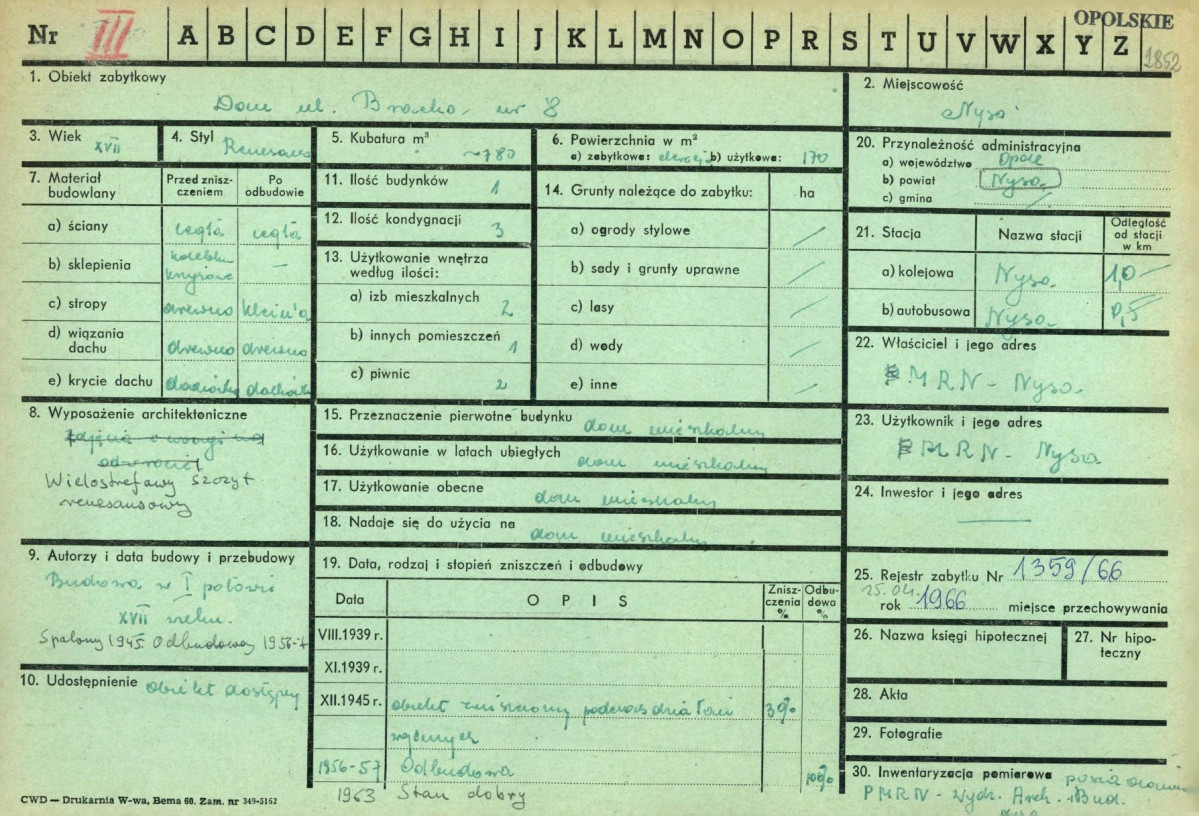 OPOLSKIE
Nr III A B C D E F G H I J K L M N O P R S T U V W X Y Z
2852
1. Obiekt zabytkowy
Dom ul. Bracka nr 8
2. Miejscowość
Nysa
3. Wiek XVII
4. Styl Renesans
5. Kubatura m³ ~780
6. Powierzchnia w m²
a) zabytkowa: b) użytkowa: 170
20. Przynależność administracyjna
a) województwo Opole
b) powiat Nysa
c) gmina
7. Materiał budowlany
Przed zniszczeniem
Po odbudowie
a) ściany cegła cegła
b) sklepienia kolebka krzyżowe —
c) stropy drewno Klein'a
d) wiązania dachu drewno drewno
e) krycie dachu dachówka dachówka
11. Ilość budynków 1
12. Ilość kondygnacji 3
13. Użytkowanie wnętrza
według ilości:
a) izb mieszkalnych 2
b) innych pomieszczeń 1
c) piwnic 2
14. Grunty należące do zabytku: ha
a) ogrody stylowe /
b) sady i grunty uprawne /
c) lasy /
d) wody /
e) inne /
21. Stacja
Nazwa stacji
Odległość od stacji w km
a) kolejowa Nysa 1,0
b) autobusowa Nysa 0,5
22. Właściciel i jego adres
MRN - Nysa
8. Wyposażenie architektoniczne
Wielostrefowy szczyt
renesansowy
15. Przeznaczenie pierwotne budynku dom mieszkalny
16. Użytkowanie w latach ubiegłych dom mieszkalny
17. Użytkowanie obecne dom mieszkalny
18. Nadaje się do użycia na dom mieszkalny
23. Użytkownik i jego adres
MRN - Nysa
24. Inwestor i jego adres
—
9. Autorzy i data budowy i przebudowy
Budowa w I połowie
XVII wieku.
Spalony 1945. Odbudowany 1956-7
10. Udostępnienie obiekt dostępny
19. Data, rodzaj i stopień zniszczeń i odbudowy
Data
OPIS
Zniszczenia %
Odbudowa %
VIII.1939 r.
XI.1939 r.
XII.1945 r. obiekt zniszczony podczas działań
wojennych
30%
1956-57 Odbudowa 100%
1963 Stan dobry
25. Rejestr zabytku Nr 1359/66
25.04.
rok 1966 miejsce przechowywania
26. Nazwa księgi hipotecznej
27. Nr hipoteczny
28. Akta
29. Fotografie
30. Inwentaryzacja pomiarowa
PMRN - Wydz. Arch. i Bud.
CWD — Drukarnia W-wa, Bema 60. Zam. nr 349-5162